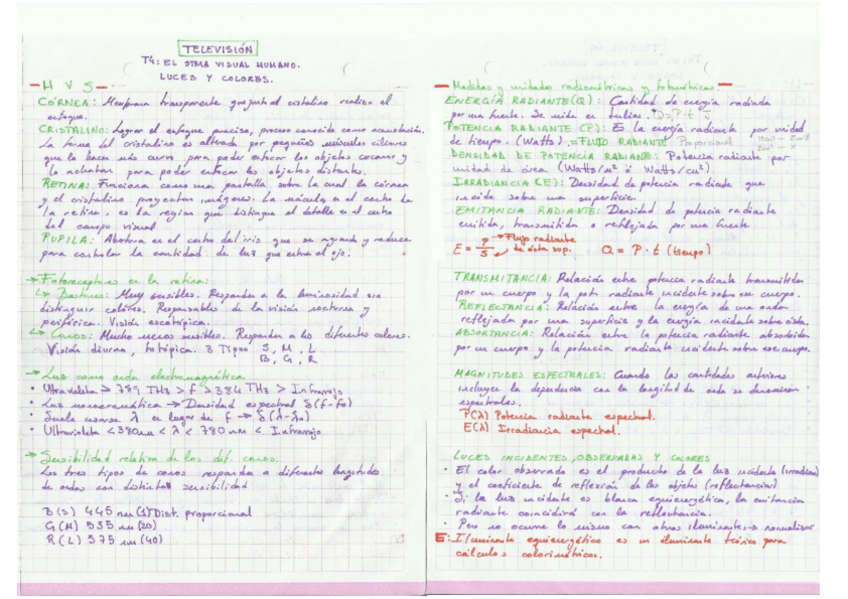 TELEVISIÓN
T4: EL STMA VISUAL HUMANO.
LUCES Y COLORES.
- H V S -
CÓRNEA: Membrana transparente que junto al cristalino realiza el
enfoque.
CRISTALINO: Lograr el enfoque preciso, proceso conocido como acomodación.
La forma del cristalino es alterada por pequeños músculos ciliares
que lo hacen más curvo para poder enfocar los objetos cercanos y
lo achatan para poder enfocar los objetos distantes.
RETINA: Funciona como una pantalla, sobre la cual la córnea
y el cristalino proyectan imágenes. La mácula, en el centro de
la retina, es la region que distingue el detalle en el centro
del campo visual
PUPILA: Abertura en el centro del iris que se agranda y reduce
para controlar la cantidad de luz que entra al ojo.
→ Fotoreceptores en la retina:
↳ Bastones: Muy sensibles. Responden a la luminosidad sin
distinguir colores. Responsables de la visión nocturna y
periférica. Visión escotópica.
↳ Conos: Mucho menos sensibles. Responden a los diferentes colores.
Visión diurna, fotópica. 3 Tipos S, M, L
B, G, R
→ Luz como onda electromagnética
• Ultravioleta > 789 THz > f > 384 THz > Infrarrojo
• Luz monocromática → Densidad espectral δ(f-fo)
• Suele usarse λ en lugar de f → δ(λ-λo)
• Ultravioleta < 380nm < λ < 780 nm < Infrarrojo
→ Sensibilidad relativa de los dif. conos:
Los tres tipos de conos responden a diferentes longitudes
de ondas con distinta sensibilidad
B (S) 445 nm (1) Dist. proporcional
G (M) 535 nm (20)
R (L) 575 nm (40)
- Medidas y unidades radiométricas y fotométricas -
ENERGÍA RADIANTE (Q): Cantidad de energía radiada
por una fuente. Se mide en Julios. Q=P·t J
POTENCIA RADIANTE (P): Es la energía radiante por unidad
de tiempo. (Watts). = FLUJO RADIANTE Proporcional
DENSIDAD DE POTENCIA RADIANTE: Potencia radiante por
unidad de área (Watts/m² ó Watts/cm²).
IRRADIANCIA (E): Densidad de potencia radiante que
incide sobre una superficie.
EMITANCIA RADIANTE: Densidad de potencia radiante
emitida, transmitida o reflejada por una fuente.
E = P/S → Flujo radiante → de esta sup. Q = P · t (tiempo)
TRANSMITANCIA: Relación entre potencia radiante transmitida
por un cuerpo y la pot. radiante incidente sobre ese cuerpo.
REFLECTANCIA: Relación entre la energía de una onda
reflejada por una superficie y la energía incidente sobre ésta.
ABSORTANCIA: Relación entre la potencia radiante absorbida
por un cuerpo y la potencia radiante incidente sobre ese cuerpo.
MAGNITUDES ESPECTRALES: Cuando las cantidades anteriores
incluyen la dependencia con la longitud de onda se denominan
espectrales.
P(λ) Potencia radiante espectral.
E(λ) Irradiancia espectral.
LUCES INCIDENTES, OBSERVADAS Y COLORES
• El color observado es el producto de la luz incidente (irradiancia)
y el coeficiente de reflexión de los objetos (reflectancias)
• Si la luz incidente es blanca equienergética, la emitancia
radiante coincidirá con la reflectancia.
• Pero no ocurre lo mismo con otros iluminantes → normalizar
E: Iluminante equienergético es un iluminante teórico para
cálculos colorimétricos.